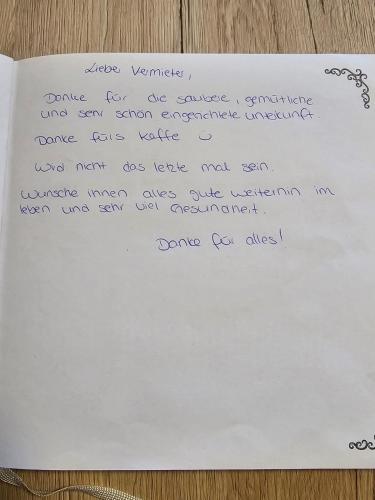 Liebe Vermieter,
Danke für die saubere, gemütliche
und sehr schön eingerichtete unterkunft.
Danke fürs kaffe ☺
Wird nicht das letzte mal sein.
Wünsche ihnen alles gute weiterhin im
leben und sehr viel Gesundheit.
Danke für alles!